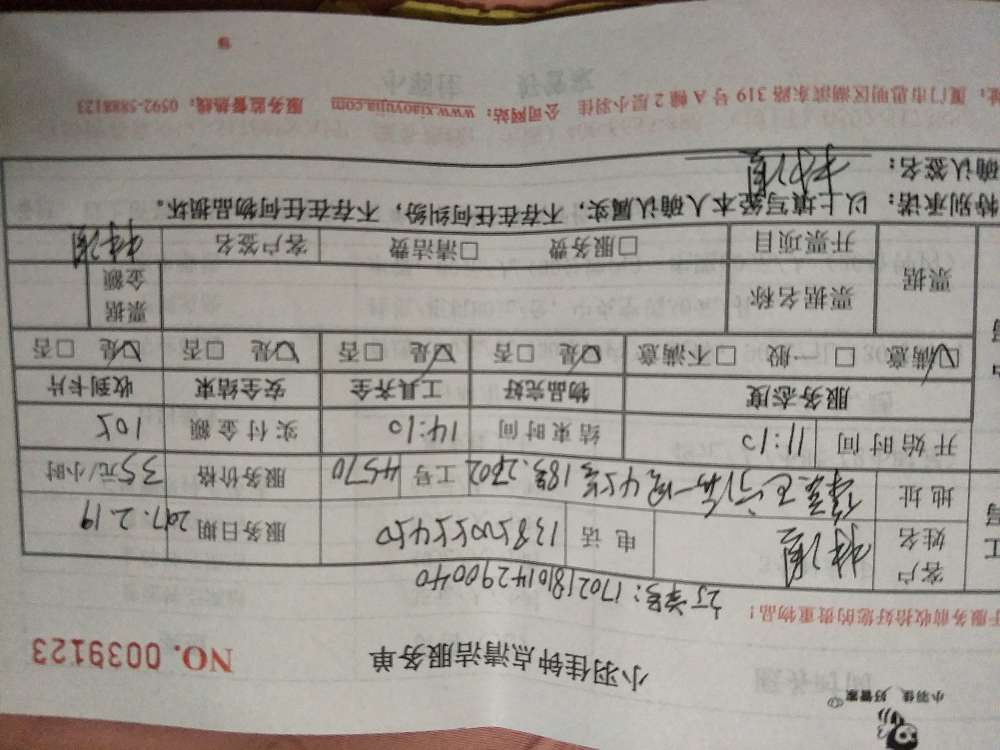 小羽佳 好管家
小羽佳钟点清洁服务单 NO. 0039123
于服务前收拾好您的贵重物品！
订单号：170218101429 00040
客户姓名 林 电话 13850055450 服务日期 2017.2.19
地址 18号2702 工号 4570 服务价格 35元/小时
开始时间 11:10 结束时间 14:10 实付金额 105
服务态度 物品完好 工具齐全 安全结束 收到卡片
☑满意 □一般 □不满意 ☑是 □否 ☑是 □否 ☑是 □否 ☑是 □否
票据 票据名称 票据金额
开票项目 □服务费 □清洁费 客户签名 林
特别承诺：以上填写经本人确认属实，不存在任何纠纷，不存在任何物品损坏。
确认签名： 林
址：厦门市思明区湖滨东路 319 号 A 幢 2 层小羽佳 公司网站：www.xiaoyujia.com 服务监督热线：0592-5888123